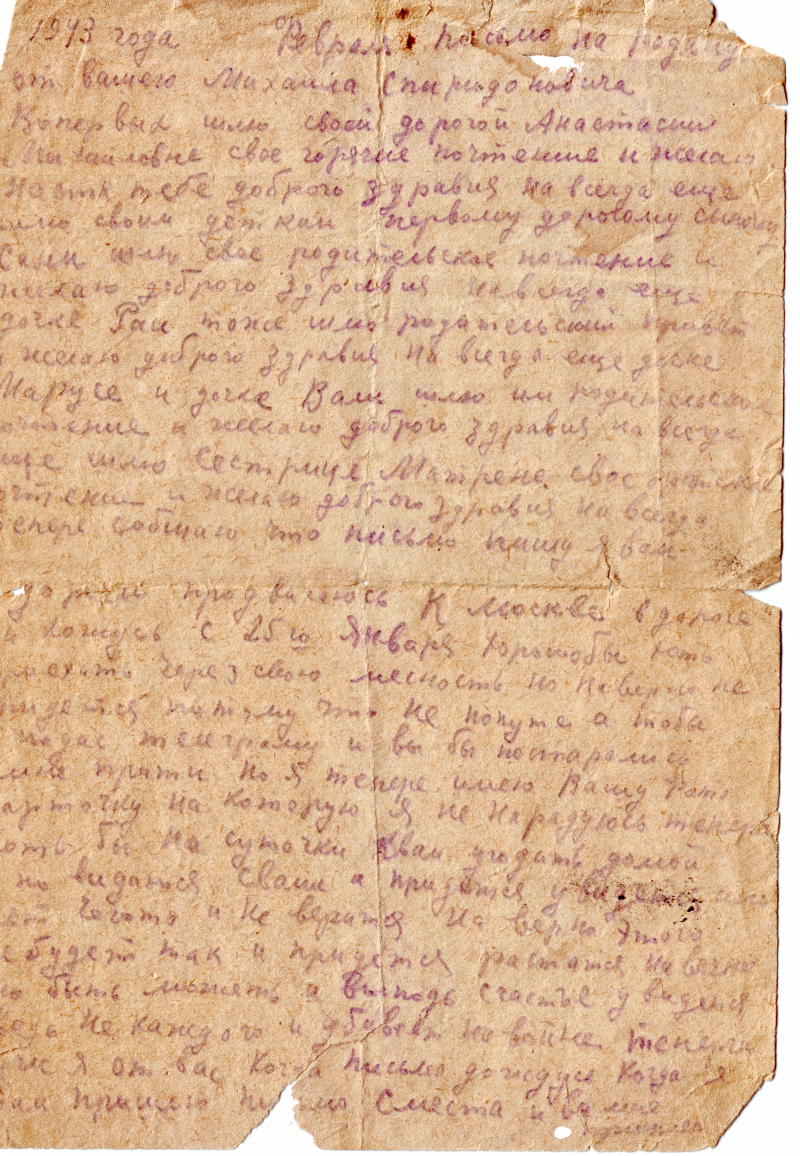 1943 года Февраля писмо на родину
от вашего Михаила Спиридоновича
Вопервых шлю своей дорогой Анастасии
Михаиловне свое горячие почтение и желаю
Настя тебе доброго здравия на всегда еще
шлю своим деткам первому дорогому сыночку
Сани шлю свое родительское почтение и
желаю доброго здравия навсегда еще
дочке Раи тоже шлю родательский привет
и желаю доброго здравия на всегда еще дочке
Марусе и дочке Вали шлю им родительское
очтение и желаю доброго здравия на всегда
еще шлю сестрице Матрене свое
очтение и желаю доброго здравия на всегда
теперь собщаю что письмо пишу я вам
продвигаюсь К Москве в дороге
нахожусь с 25 го Января хорошобы хоть
роехать через свою месность но наверно не
ридется потому что не попуте а тобы
подас телеграму и вы бы постарались
мне притти но я теперь имею Вашу Фото
арточку на которую Я не нарадуюсь теперь
оть бы на суточки к вам угодить домой
видатся свами а придется
чегото и не верится На верно этого
е будет так и придется растатся навечно
о быть можеть и выпадь счастье увидемся
ведь не каждого и убувают на войне теперь
я от вас когда письмо дождусь когда я
вам пришлю письмо сместа и вы мне